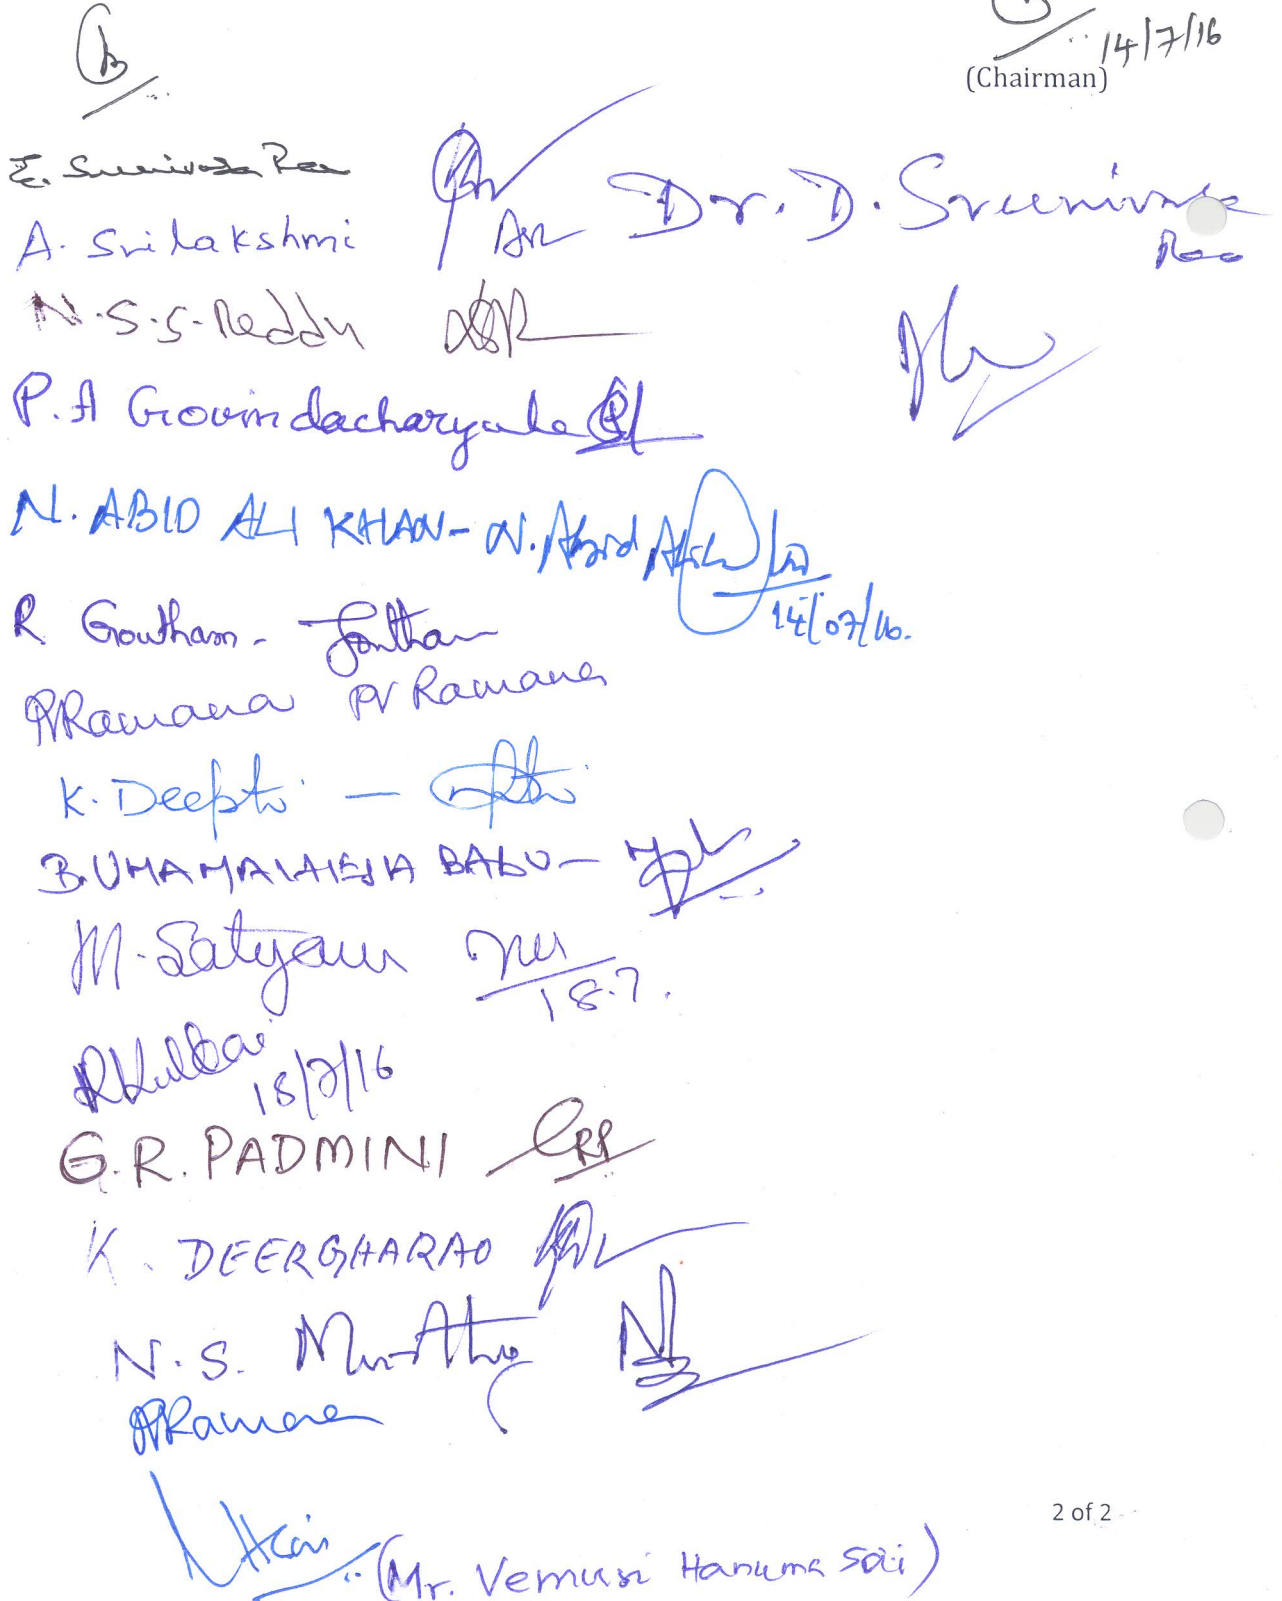 14/7/16
(Chairman)
E. Srinivasa Rao
A. Srilakshmi
Dr. D. Sreenivasa
Rao
N.S.S. Reddy
P.A Govindacharyulu
N. ABID ALI KHAN - N. Abid Ali Khan
14/07/16.
R Goutham - Goutham
PVRamana PV Ramana
K. Deepti -
B. UMA MAHESHA BABU -
M. Satyam
18.7.
18/7/16
G.R. PADMINI GRP
K. DEERGHARAO
N.S. Murthy
PVRamana
2 of 2
(Mr. Vemuri Hanuma Sai)